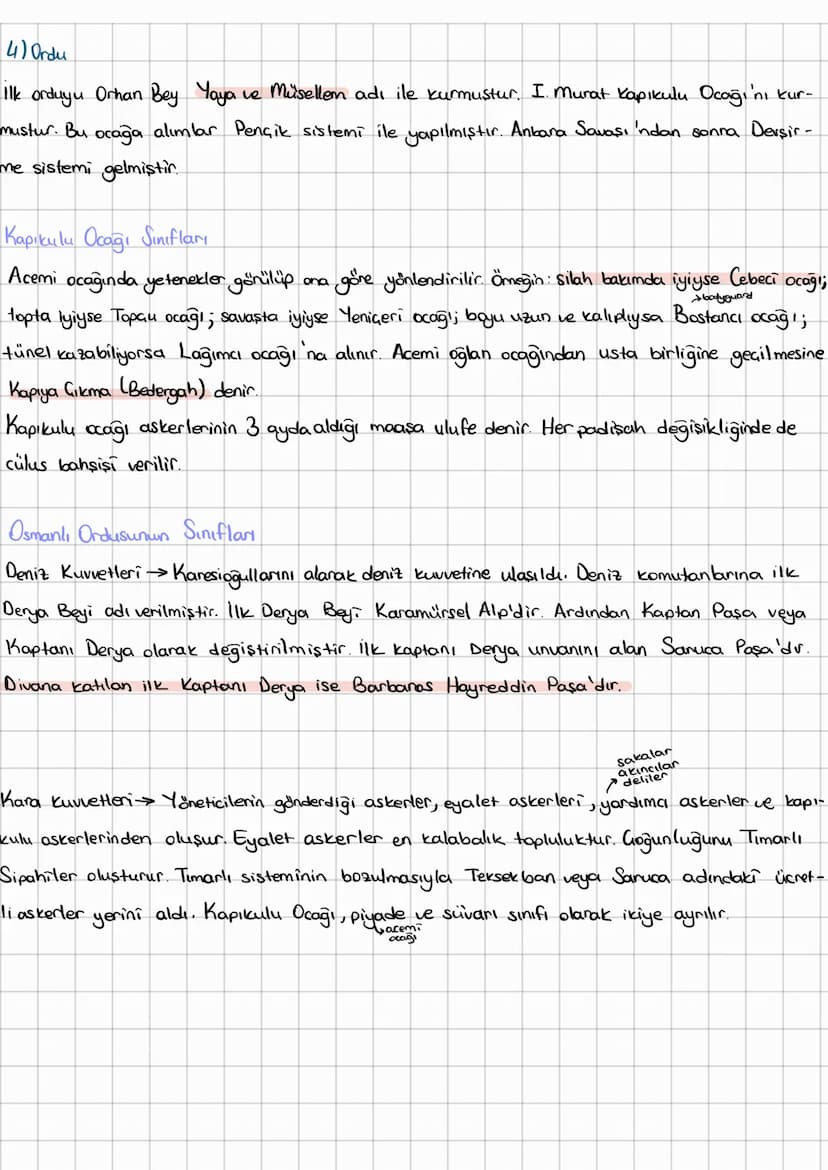 4) Ordu
İlk orduyu Orhan Bey Yaya ve Müsellem adı ile kurmuştur. I. Murat Kapıkulu Ocağı'nı kur-
muştur. Bu ocağa alımlar Pençik sistemi ile yapılmıştır. Ankara Savaşı'ndan sonra Devşir-
me sistemi gelmiştir.
Kapıkulu Ocağı Sınıfları
Acemi ocağında yetenekler görülüp ona göre yönlendirilir. Örneğin: silah bakımda iyiyse Cebeci ocağı;
→ bodyguard
topta iyiyse Topçu ocağı; savaşta iyiyse Yeniçeri ocağı; boyu uzun ve kalıplıysa Bostancı ocağı;
tünel kazabiliyorsa Lağımcı ocağı'na alınır. Acemi oğlan ocağından usta birliğine geçilmesine
Kapıya Çıkma (Bedergah) denir.
Kapıkulu ocağı askerlerinin 3 ayda aldığı maaşa ulufe denir. Her padişah değişikliğinde de
cülus bahşişi verilir.
Osmanlı Ordusunun Sınıfları
Deniz Kuvvetleri → Karesioğullarını alarak deniz kuvvetine ulaşıldı. Deniz komutanlarına ilk
Derya Beyi adı verilmiştir. İlk Derya Beyi Karamürsel Alp'dir. Ardından Kaptan Paşa veya
Kaptanı Derya olarak değiştirilmiştir. İlk kaptanı Derya unvanını alan Saruca Paşa'dır.
Divana katılan ilk Kaptanı Derya ise Barbaros Hayreddin Paşa'dır.
sakalar
akıncılar
↗ deliler
Kara Kuvvetleri → Yöneticilerin gönderdiği askerler, eyalet askerleri, yardımcı askerler ve kapı-
kulu askerlerinden oluşur. Eyalet askerler en kalabalık topluluktur. Çoğunluğunu Tımarlı
Sipahiler oluşturur. Tımarlı sisteminin bozulmasıyla Tersekban veya Saruca adındaki ücret-
li askerler yerini aldı. Kapıkulu Ocağı, piyade ve süvari sınıfı olarak ikiye ayrılır.
↳ acemi
ocağı